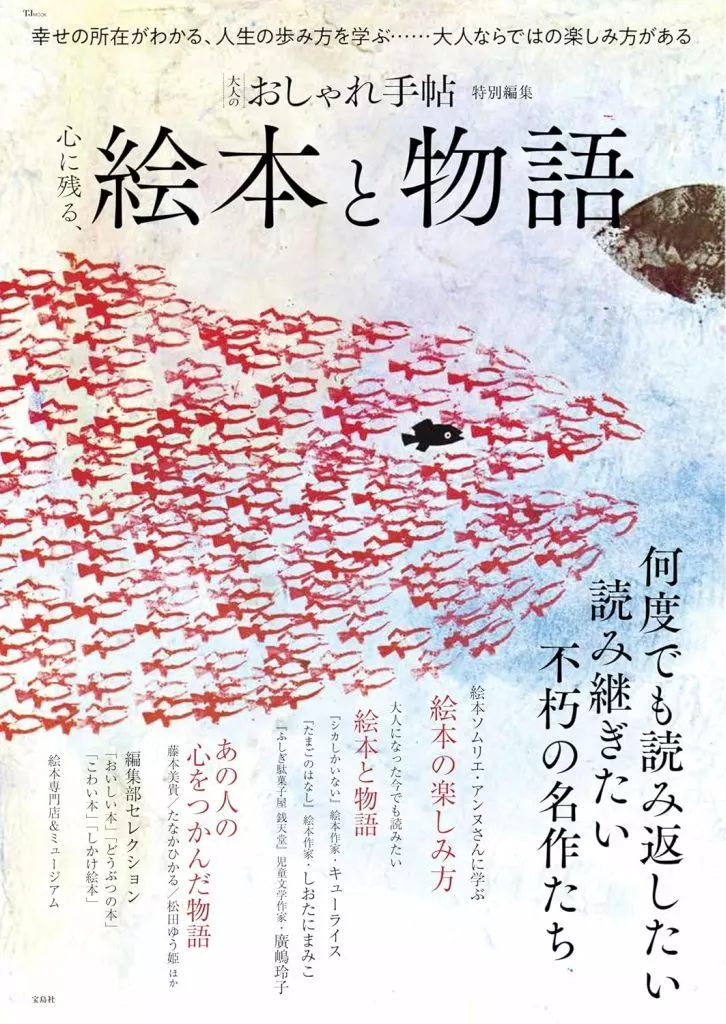 TJ MOOK
幸せの所在がわかる、人生の歩み方を学ぶ……大人ならではの楽しみ方がある
大人の
おしゃれ手帖
特別編集
心に残る、
絵本と物語
何度でも読み返したい
読み継ぎたい
不朽の名作たち
絵本ソムリエ・アンヌさんに学ぶ
絵本の楽しみ方
大人になった今でも読みたい
絵本と物語
『シカしかいない』絵本作家・キューライス
『たまごのはなし』絵本作家・しおたにまみこ
『ふしぎ駄菓子屋 銭天堂』児童文学作家・廣嶋玲子
あの人の
心をつかんだ物語
藤本美貴／たなかひかる／松田ゆう姫 ほか
編集部セレクション
「おいしい本」「どうぶつの本」
「こわい本」「しかけ絵本」
絵本専門店＆ミュージアム
宝島社